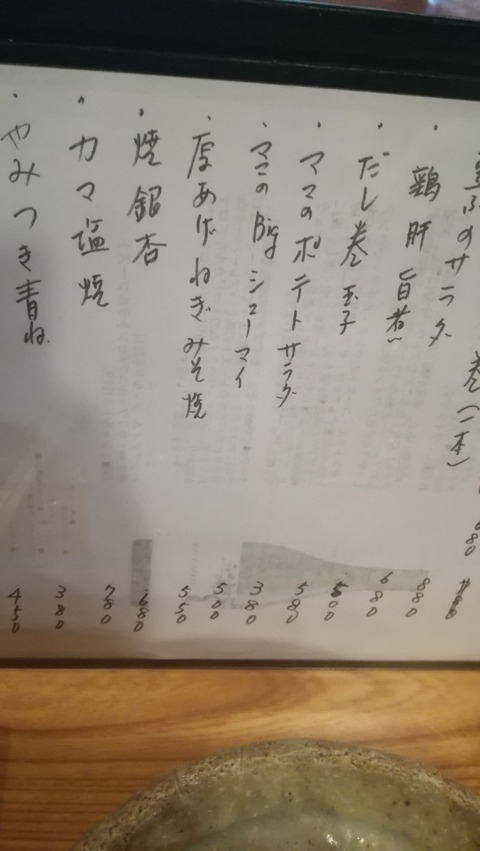 巻(二本) 680
豆ふのサラダ
鶏肝旨煮
だし巻玉子
ママのポテトサラダ
ママのBigシューマイ
厚あげねぎみそ焼
焼銀杏
カマ塩焼
やみつき青ね
880
680
500
580
380
500
550
680
780
380
450